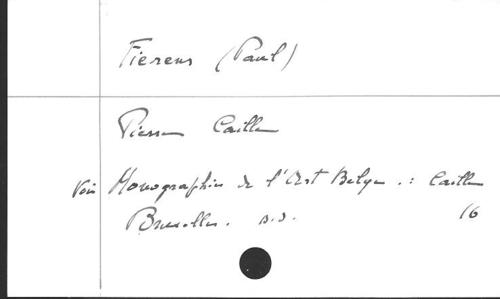 Fierens (Paul)
Pierre Caille
Voir Monographies de l'Art Belge .: Caille
Bruxelles. s.d. 16